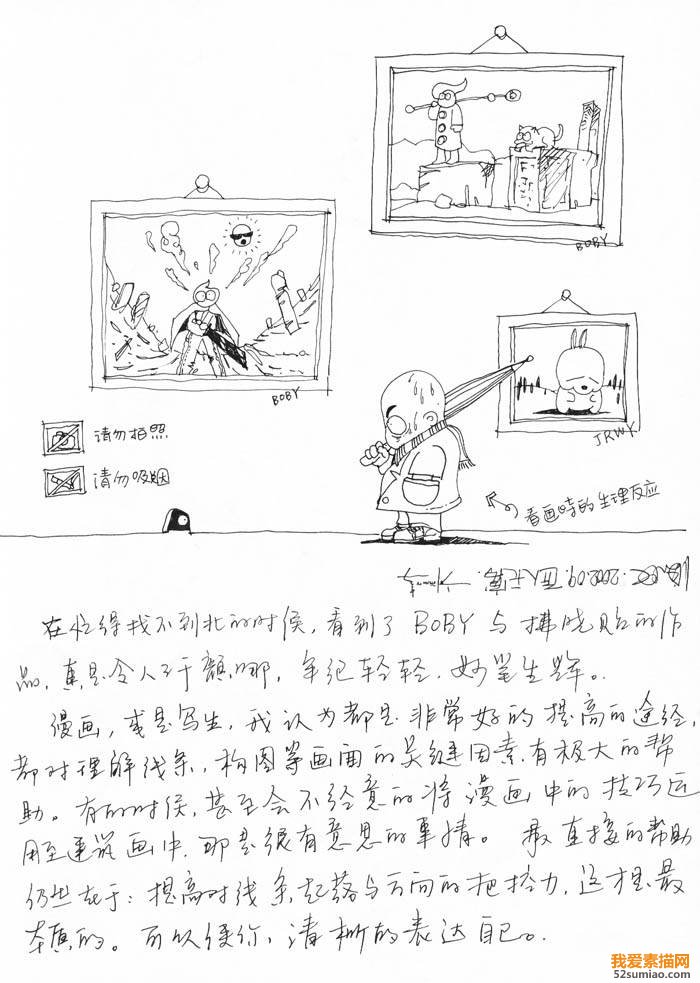 BOBY
BOBY
JRWY
请勿拍照
请勿吸烟
看画时的生理反应
2002.09.
在忙得找不到北的时候,看到了 BOBY 与
的作
品,真是令人汗颜哪,年纪轻轻,妙笔生辉。
漫画,或是写生,我认为都是非常好的提高的途径,
都对理解线条,构图等画面的关键因素有极大的帮
助。有的时候,甚至会不经意的将漫画中的技巧运
用至建筑画中,那是很有意思的事情。最直接的帮助
仍些在于:提高对线条起落与方向的把控力,这才是最
本真的。可以使你,清晰的表达自己。
我爱素描网
52sumiao.com